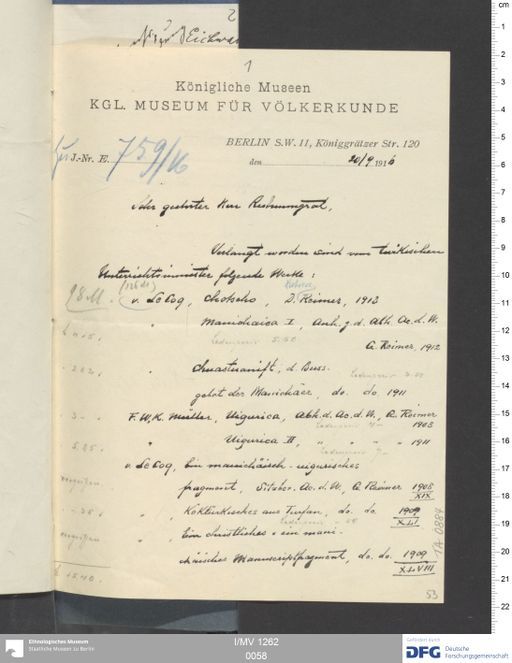 1
Königliche Museen
KGL. MUSEUM FÜR VÖLKERKUNDE
BERLIN S.W. 11, Königgrätzer Str. 120
zu J.-Nr. E. 759/16
den 20/9 1916
Sehr geehrter Herr Rechnungsrat,
Verlangt worden sind vom türkischen
Unterrichtsminister folgende Werke:
98 M.
v. Le Coq, Chotscho, D. Reimer, 1913
Manichaica I, Anh. z. d. Abh. Ac. d. W.
G. Reimer, 1912
" Chuastuanift, d. Buss-
gebet der Manichäer, do. do. 1911
F. W. K. Müller, Uigurica, Abh. d. Ac. d. W., G. Reimer
1908
" Uigurica II, " " " " 1911
v. Le Coq, Ein manichäisch-uigurisches
Fragment, Sitzber. Ac. d. W., G. Reimer 1908
XIX
" Köktürkisches aus Turfan, do. do. 1909
XLI
" Ein christliches u. ein mani-
chäisches Manuscriptfragment, do. do. 1909
XLVIII
IA 0884
53
Ethnologisches Museum
Staatliche Museen zu Berlin
I/MV 1262
0058
Gefördert durch
DFG Deutsche
Forschungsgemeinschaft
cm
1
2
3
4
5
6
7
8
9
10
11
12
13
14
15
16
17
18
19
20
21
22